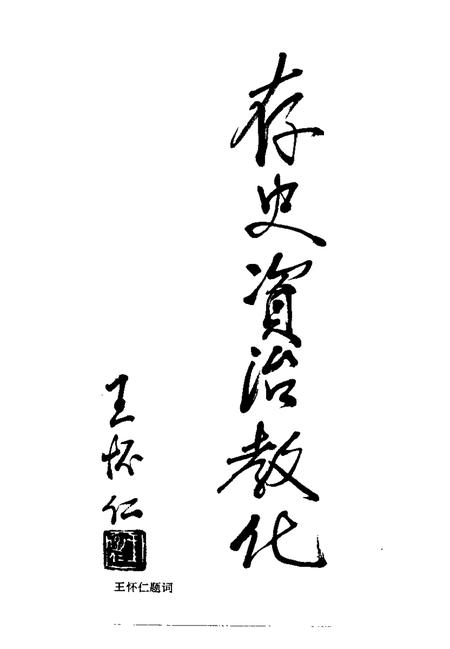 存史资治教化
王怀仁
王怀仁题词